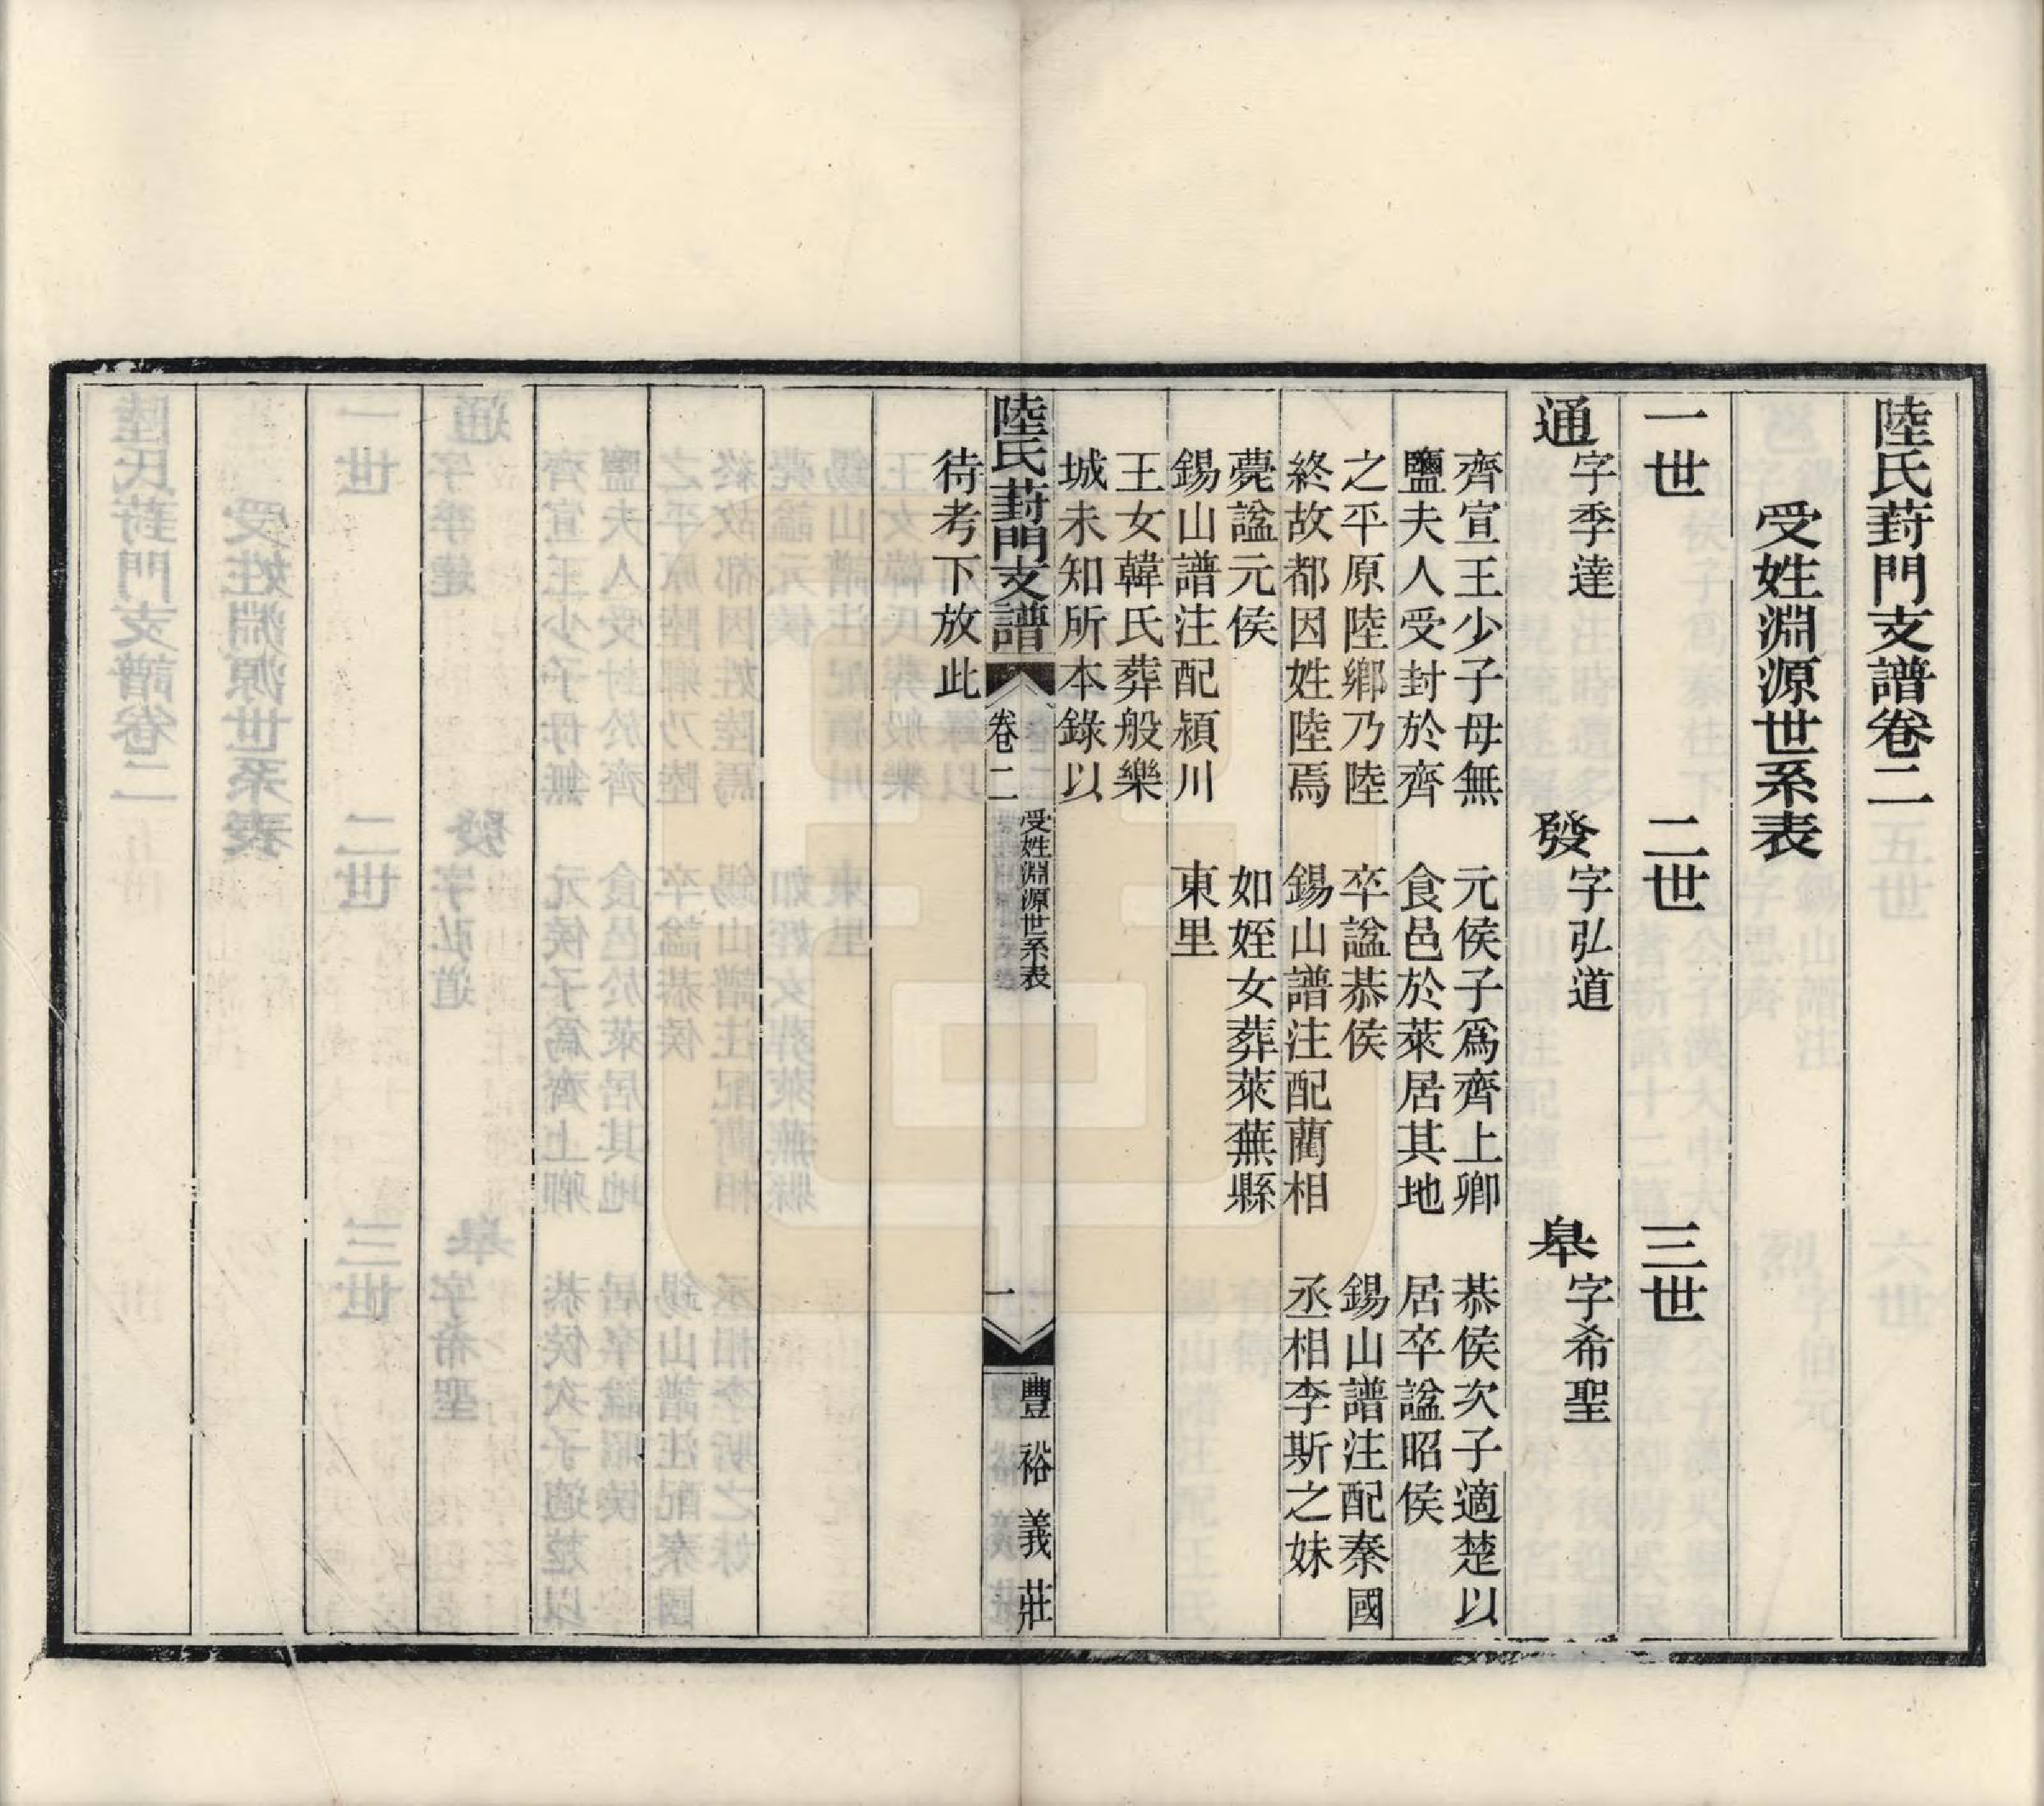 陸氏葑門支譜卷二
受姓淵源世系表
一世　二世　三世
通字季達　發字弘道　皋字希聖
齊宣王少子母無　元侯子爲齊上卿　恭侯次子適楚以
鹽夫人受封於齊　食邑於萊居其地　居卒諡昭侯
之平原陸鄉乃陸　卒諡恭侯　錫山譜注配秦國
終故都因姓陸焉　錫山譜注配藺相　丞相李斯之妹
薨諡元侯　如姪女葬萊蕪縣
錫山譜注配潁川　東里
王女韓氏葬般樂
城未知所本錄以
陸氏葑門支譜　卷二　受姓淵源世系表　一　豐裕義莊
待考下放此